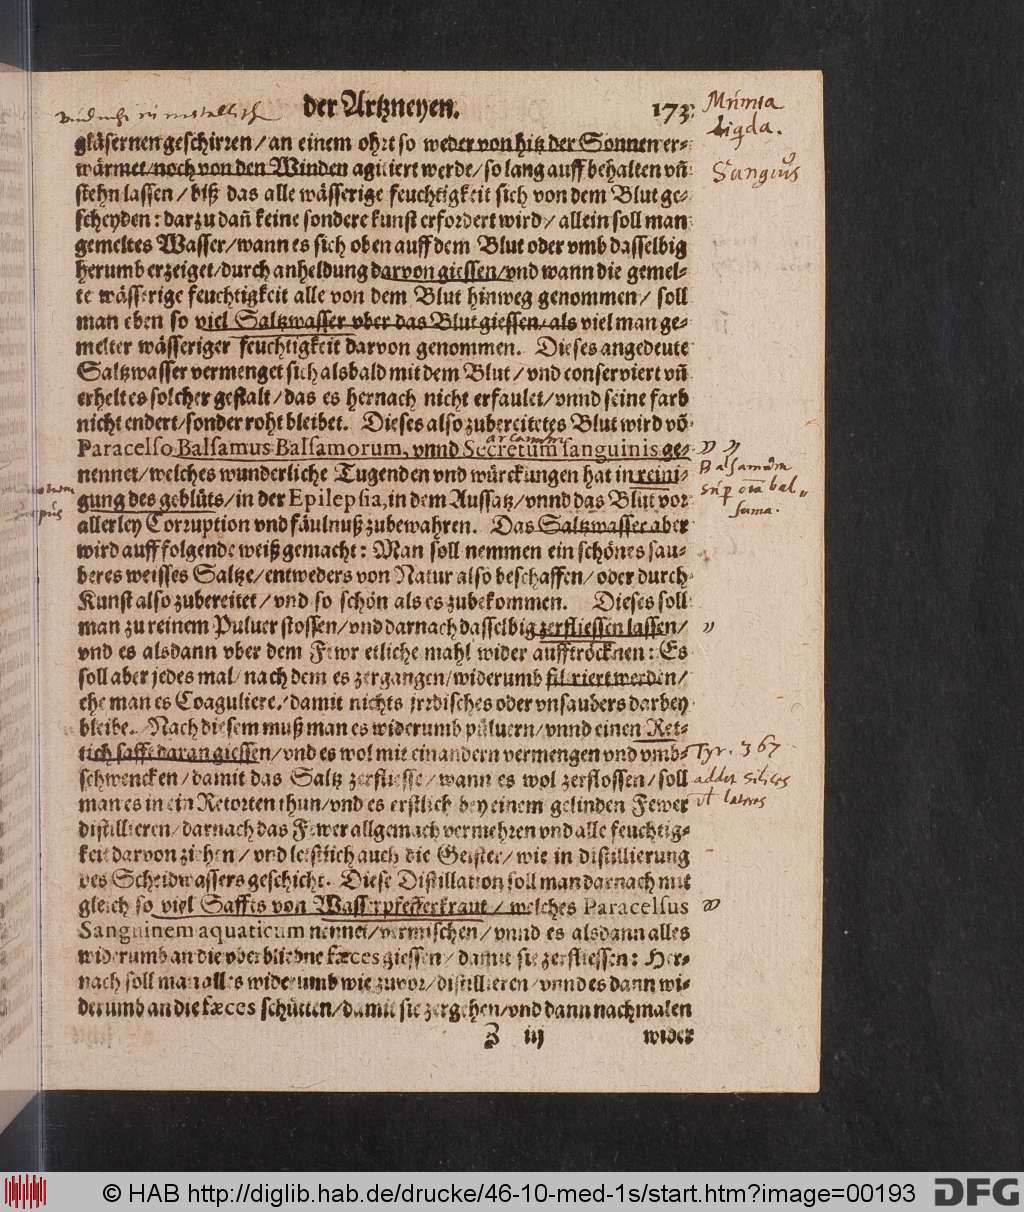 der Artzneyen. 173
Mumia
liqda.
Sanguis
gläsernen geschirren / an einem ohrt so weder von hitz der Sonnen er⸗
wärmet / noch von den Winden agitiert werde / so lang auff behalten vn̄
stehn lassen / biß das alle wässerige feuchtigkeit sich von dem Blut ge⸗
scheyden : darzu dañ keine sondere kunst erfordert wird / allein soll man
gemeltes Wasser / wann es sich oben auff dem Blut oder vmb dasselbig
herumb erzeiget / durch anheldung darvon giessen / vnd wann die gemel⸗
te wässerige feuchtigkeit alle von dem Blut hinweg genommen / soll
man eben so viel Saltzwasser vber das Blut giessen / als viel man ge⸗
melter wässeriger feuchtigkeit darvon genommen. Dieses angedeute
Saltzwasser vermenget sich alsbald mit dem Blut / vnd conserviert vn̄
erhelt es solcher gestalt / das es hernach nicht erfaulet / vnnd seine farb
nicht endert / sonder roht bleibet. Dieses also zubereitetes Blut wird võ
arcanum
Paracelso Balsamus Balsamorum, vnnd Secretum sanguinis ge⸗
nennet / welches wunderliche Tugenden vnd würckungen hat in reini⸗
Balsamum
sup̄ om̄ bal„
sama.
gung des geblüts / in der Epilepsia, in dem Aussatz / vnnd das Blut vor
allerley Corruption vnd fäulnuß zubewahren. Das Saltzwasser aber
wird auff folgende weiß gemacht : Man soll nemmen ein schönes sau⸗
beres weisses Saltze / entweders von Natur also beschaffen / oder durch
Kunst also zubereitet / vnd so schön als es zubekommen. Dieses soll
man zu reinem Puluer stossen / vnd darnach dasselbig zerfliessen lassen /
vnd es alsdann vber dem Fewr etliche mahl wider aufftröcknen : Es
soll aber jedes mal / nach dem es zergangen / widerumb filtriert werden /
ehe man es Coaguliere / damit nichts jrrdisches oder vnsaubers darbey
bleibe. Nach diesem muß man es widerumb püluern / vnnd einen Ret⸗
tich safft daran giessen / vnd es wol mit einandern vermengen vnd vmb⸗
Tyr. 367
adder silices
vl lateres
schwencken / damit das Saltz zerfliesse / wann es wol zerflossen / soll
man es in ein Retorten thun / vnd es erstlich bey einem gelinden Fewer
distillieren / darnach das Fewer allgemach vermehren vnd alle feuchtig⸗
keit darvon ziehen / vnd letstlich auch die Geister / wie in distillierung
des Scheidwassers geschicht. Diese Distillation soll man darnach mit
gleich so viel Saffts von Wasserpfefferkraut / welches Paracelsus
Sanguinem aquaticum nennet / vermischen / vnnd es alsdann alles
widerumb an die vberbliebne fæces giessen / damit sie zerfliessen : Her⸗
nach soll man alles widerumb wie zuvor / distillieren / vnnd es dann wi⸗
derumb an die fæces schütten / damit sie zergehen / vnd dann nachmalen
Z iij wider
© HAB http://diglib.hab.de/drucke/46-10-med-1s/start.htm?image=00193 DFG